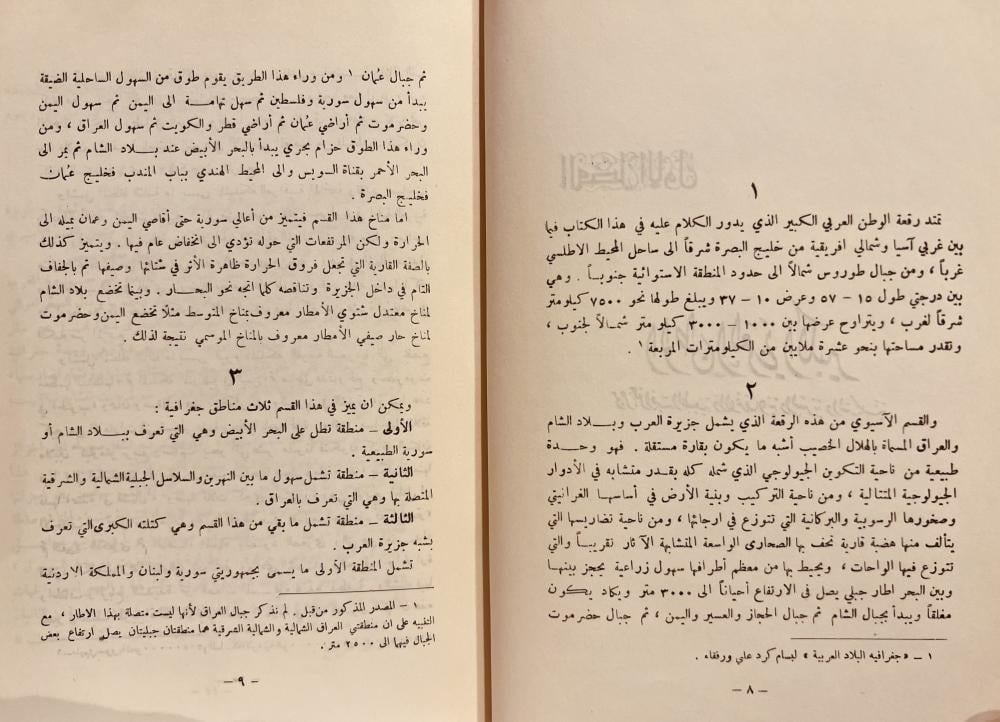 ١
تمتد رقعة الوطن العربي الكبير الذي يدور الكلام عليه في هذا الكتاب فيما
بين غربي آسيا وشمالي افريقية من خليج البصرة شرقاً الى ساحل المحيط الاطلسي
غرباً ، ومن جبال طوروس شمالاً الى حدود المنطقة الاستوائية جنوباً . وهي
بين درجتي طول ١٥ – ٥٧ وعرض ١٠ – ٣٧ ويبلغ طولها نحو ٧٥٠٠ كيلومتر
شرقاً لغرب ، ويتراوح عرضها بين ١٠٠٠ – ٣٠٠٠ كيلو متر شمالاً لجنوب ،
وتقدر مساحتها بنحو عشرة ملايين من الكيلومترات المربعة ١ .
٢
والقسم الآسيوي من هذه الرقعة الذي يشمل جزيرة العرب وبلاد الشام
والعراق المسماة بالهلال الخصيب أشبه ما يكون بقارة مستقلة . فهو وحدة
طبيعية من ناحية التكوين الجيولوجي الذي شمله كله بقدر متشابه في الأدوار
الجيولوجية المتتالية ، ومن ناحية التركيب وبنية الأرض في أساسها الغرانيتي
وصخورها الرسوبية والبركانية التي تتوزع في ارجائها ، ومن ناحية تضاريسها التي
يتألف منها هضبة قارية تحف بها الصحارى الواسعة المتشابهة الآثار تقريباً والتي
تتوزع فيها الواحات ، ويحيط بها من معظم أطرافها سهول زراعية يحجز بينها
وبين البحر اطار جبلي يصل في الارتفاع أحياناً الى ٣٠٠٠ متر ويكاد يكون
مغلقاً ويبدأ بجبال الشام ثم جبال الحجاز والعسير واليمن ، ثم جبال حضرموت
١ – « جغرافيه البلاد العربية » لبسام كرد علي ورفقاء .
– ٨ –
ثم جبال عُمان ١ ومن وراء هذا الطريق يقوم طوق من السهول الساحلية الضيقة
يبدأ من سهول سورية وفلسطين ثم سهل تهامة الى اليمن ثم سهول اليمن
وحضرموت ثم أراضي عُمان ثم أراضي قطر والكويت ثم سهول العراق ، ومن
وراء هذا الطوق حزام بحري يبدأ بالبحر الأبيض عند بلاد الشام ثم يمر الى
البحر الأحمر بقناة السويس والى المحيط الهندي بباب المندب فخليج عُمان
فخليج البصرة .
اما مناخ هذا القسم فيتميز من أعالي سورية حتى أقاصي اليمن وعمان بميله الى
الحرارة ولكن المرتفعات التي حوله تؤدي الى انخفاض عام فيها . ويتميز كذلك
بالصفة القارية التي تجعل فروق الحرارة ظاهرة الأثر في شتائها وصيفها ثم بالجفاف
التام في داخل الجزيرة وتناقصه كلما اتجه نحو البحار . وبينما تخضع بلاد الشام
لمناخ معتدل شتوي الأمطار معروف بمناخ المتوسط مثلاً تخضع اليمن وحضرموت
لمناخ حار صيفي الأمطار معروف بالمناخ الموسمي نتيجة لذلك .
٣
ويمكن ان يميز في هذا القسم ثلاث مناطق جغرافية :
الأولى – منطقة تطل على البحر الأبيض وهي التي تعرف ببلاد الشام أو
سورية الطبيعية .
الثانية – منطقة تشمل سهول ما بين النهرين والسلاسل الجبلية الشمالية والشرقية
المتصلة بها وهي التي تعرف بالعراق .
الثالثة – منطقة تشمل ما بقي من هذا القسم وهي كتلته الكبرى التي تعرف
بشبه جزيرة العرب .
تشمل المنطقة الأولى ما يسمى بجمهوريتي سورية ولبنان والمملكة الاردنية
١ – المصدر المذكور من قبل . لم نذكر جبال العراق لأنها ليست متصلة بهذا الاطار ، مع
التنبيه على ان منطقتي العراق الشمالية والشمالية الشرقية هما منطقتان جبليتان يصل ارتفاع بعض
الجبال فيهما الى ٢٥٠٠ متر .
– ٩ –